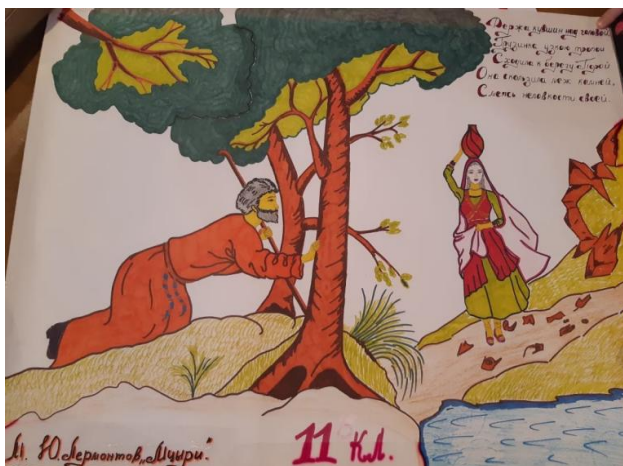 Держа кувшин над головой,
Грузинка узкою тропой
Сходила к берегу. Порой
Она скользила меж камней,
Смеясь неловкости своей.
М. Ю. Лермонтов „Мцыри".
11 кл.